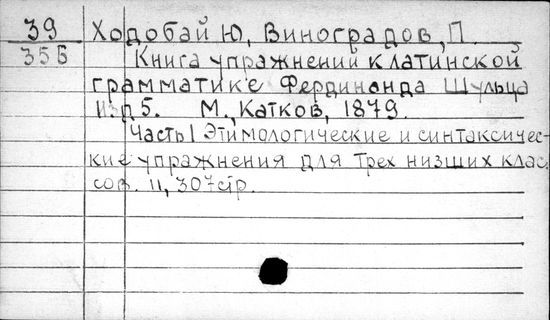 39 Ходобай Ю, Виноградов, П.
35Б Книга упражнений к латинской
грамматике Фердинанда Шульца
Изд 5. М., Катков, 1879.
Часть I Этимологические и синтаксичес-
кие упражнения для трех низших клас
сов. II, 307 стр.